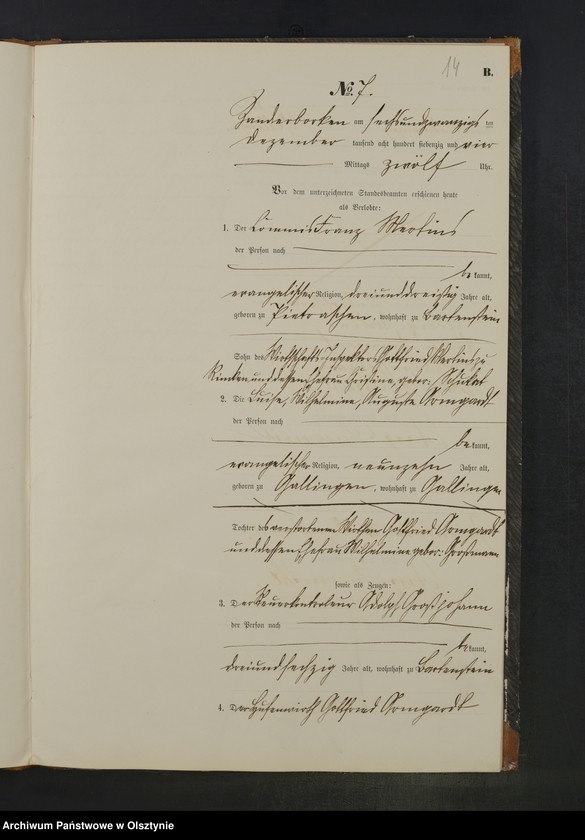 14
B.
No. 7.
am sechsundzwanzigsten
Dezember tausend acht hundert siebenzig und vier
Mittags zwölf Uhr.
Vor dem unterzeichneten Standesbeamten erschienen heute
als Verlobte:
1. Der Commis Franz Mertins
der Person nach
bekannt,
evangelischer Religion, dreiunddreißig Jahre alt,
geboren zu Pietraschen, wohnhaft zu Bartenstein
Sohn des Wirthschafts-Inspektors Gottfried Mertins zu
und dessen Ehefrau Christine, gebor: Schickat
2. Die Luise, Wilhelmine, Auguste Romgardt
der Person nach
bekannt,
evangelischer Religion, neunzehn Jahre alt,
geboren zu Gallingen, wohnhaft zu Gallingen
Tochter des verstorbenen Wirthen Gottfried Romgardt
und dessen Ehefrau Wilhelmine gebor: Großmann
sowie als Zeugen:
3. Der Adolf Großjohann
der Person nach
bekannt,
dreiundsechzig Jahre alt, wohnhaft zu Bartenstein
4. Der Hufenwirth Gottfried Romgardt
Archiwum Państwowe w Olsztynie